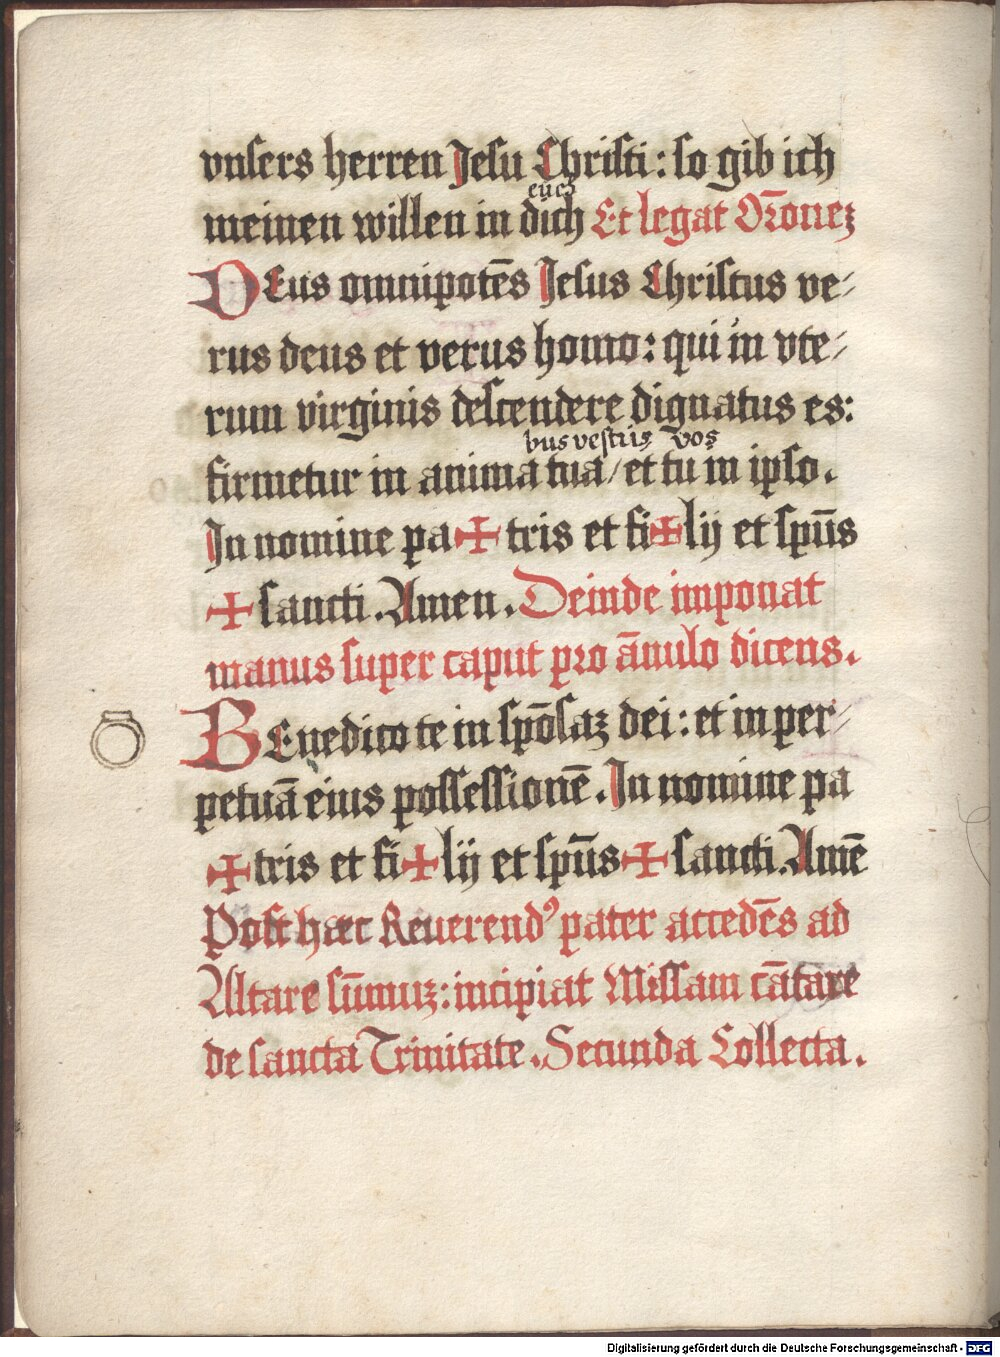 vnsers herren Jesu Christi: so gib ich
euch
meinen willen in dich Et legat Or̄onez
DEus omnipotēs Jesus Christus ve-
rus deus et verus homo: qui in vte-
rum virginis descendere dignatus es:
bus vestris vos
firmetur in anima tua/ et tu in ipso.
In nomine pa✠tris et fi✠lij et spūs
✠ sancti. Amen. Deinde imponat
manus super caput pro ānulo dicens.
BEnedico te in spōsaz dei: et in per-
petuā eius possessionē. In nomine pa
✠tris et fi✠lij et spūs✠ sancti. Amē
Post hæc Reuerendꝰ pater accedēs ad
Altare sūmuz: incipiat Missam cātare
de sancta Trinitate. Secunda Collecta.
Digitalisierung gefördert durch die Deutsche Forschungsgemeinschaft - DFG